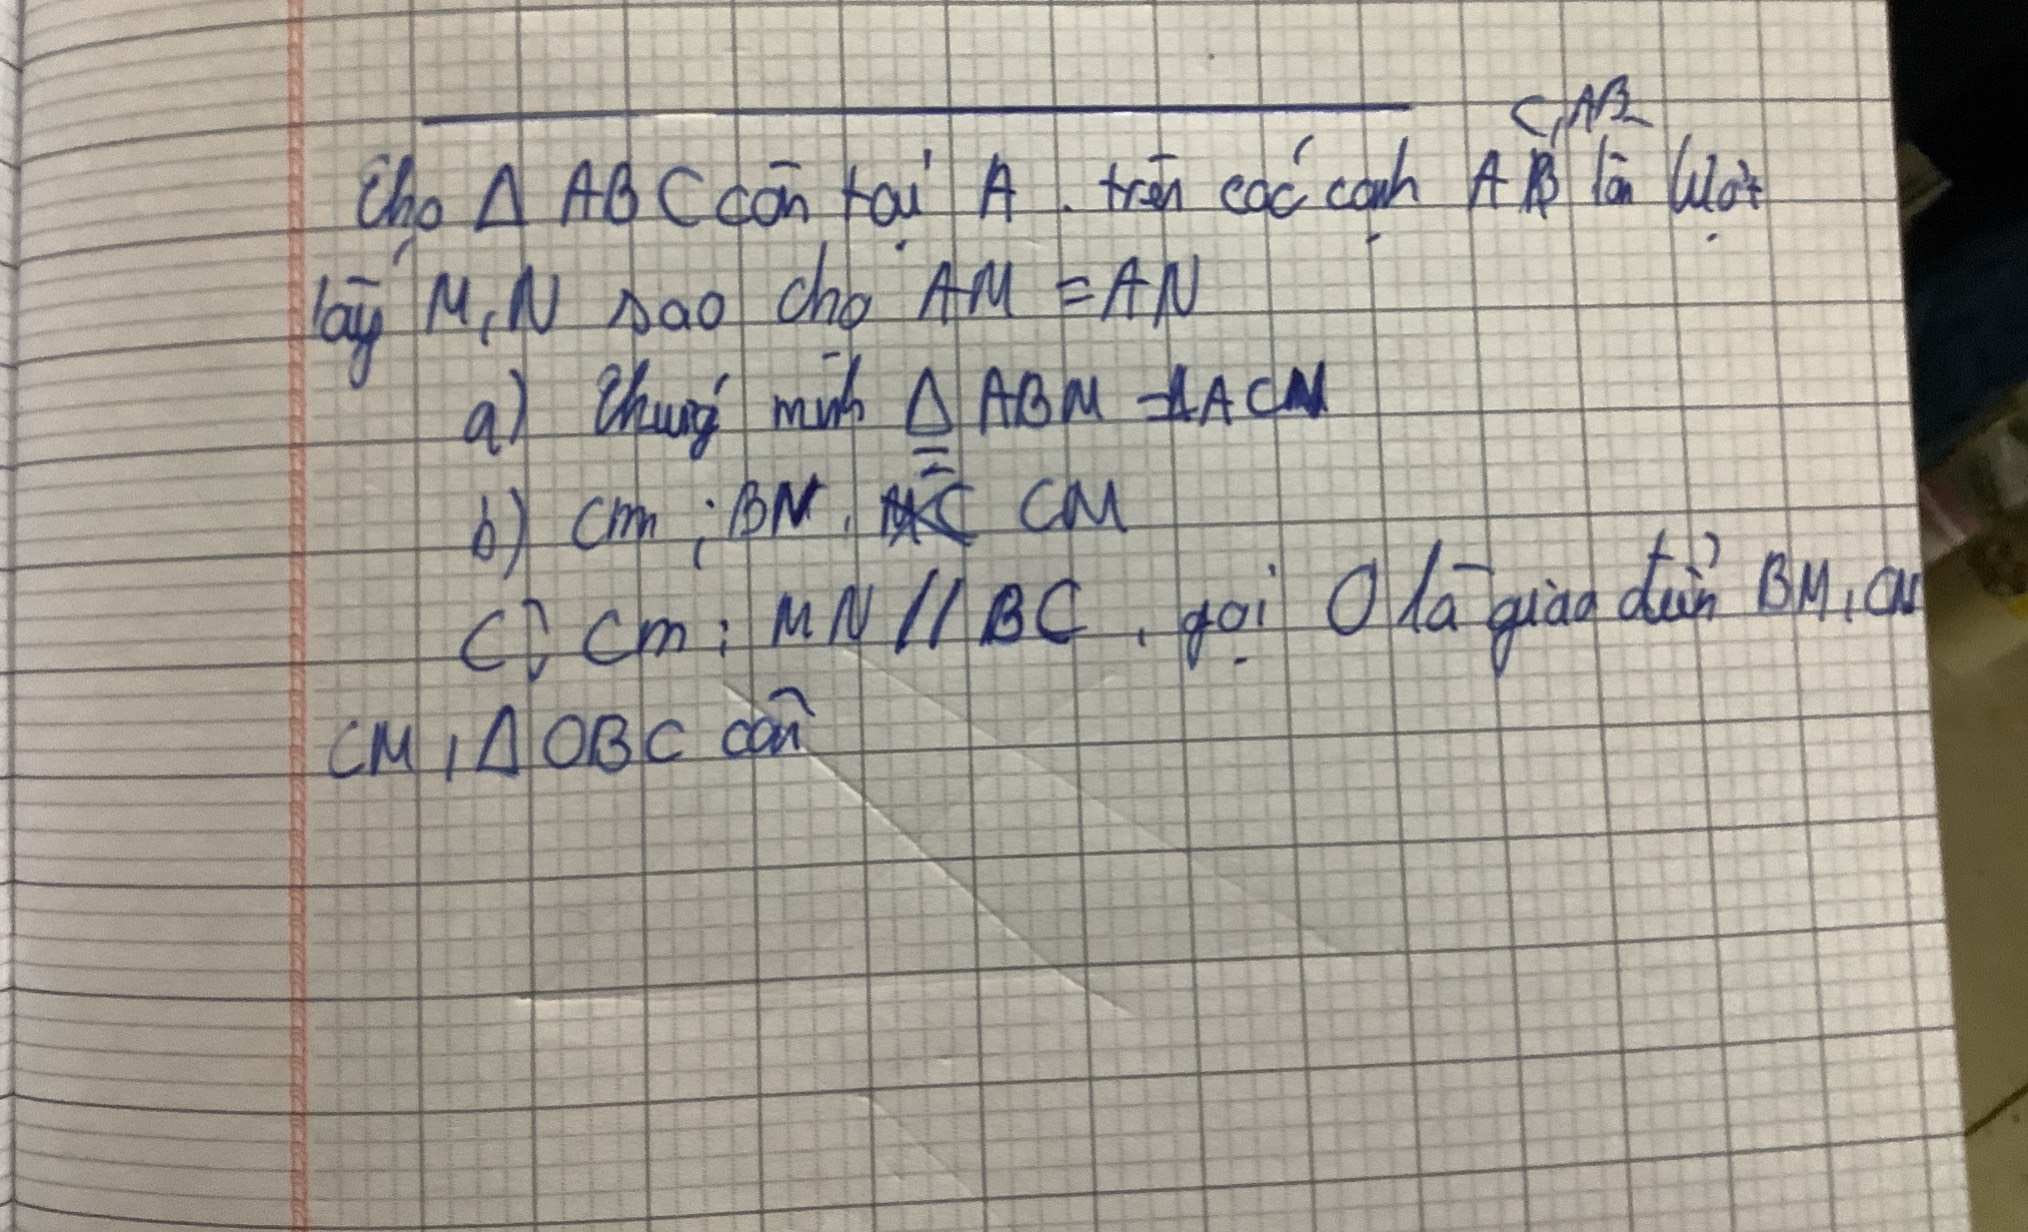 C, AB
Cho Δ ABC cân tại A. trên các cạnh AB lần lượt
lấy M, N sao cho AM = AN
a) Chứng minh Δ ABM = Δ ACN
b) cm ; BN = CM
c) Cm : MN // BC, gọi O là giao điểm BM, CN
CM, Δ OBC cân